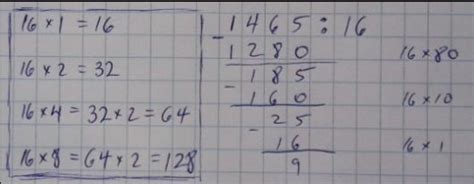 16 × 1 = 16
16 × 2 = 32
16 × 4 = 32 × 2 = 64
16 × 8 = 64 × 2 = 128
- 1465 : 16
1280 16 × 80
- 185
160 16 × 10
- 25
16 16 × 1
9